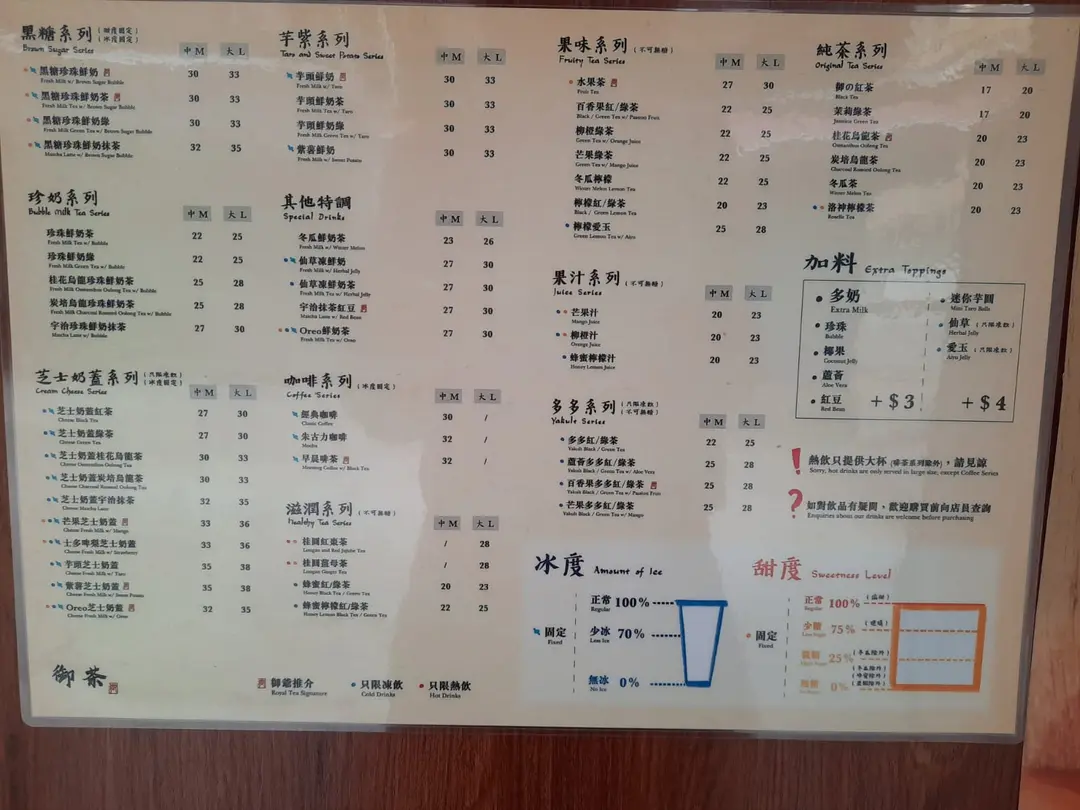 黑糖系列 (甜度固定) (冰度固定)
Brown Sugar Series
中 M 大 L
黑糖珍珠鮮奶 30 33
Fresh Milk w/ Brown Sugar Bubble
黑糖珍珠鮮奶茶 30 33
Fresh Milk Tea w/ Brown Sugar Bubble
黑糖珍珠鮮奶綠 30 33
Fresh Milk Green Tea w/ Brown Sugar Bubble
黑糖珍珠鮮奶抹茶 32 35
Matcha Latte w/ Brown Sugar Bubble
珍奶系列
Bubble Milk Tea Series
中 M 大 L
珍珠鮮奶茶 22 25
Fresh Milk Tea w/ Bubble
珍珠鮮奶綠 22 25
Fresh Milk Green Tea w/ Bubble
桂花烏龍珍珠鮮奶茶 25 28
Fresh Milk Osmanthus Oolong Tea w/ Bubble
炭培烏龍珍珠鮮奶茶 25 28
Fresh Milk Charcoal Roasted Oolong Tea w/ Bubble
宇治珍珠鮮奶抹茶 27 30
Matcha Latte w/ Bubble
芝士奶蓋系列 (只限凍飲) (冰度固定)
Cream Cheese Series
中 M 大 L
芝士奶蓋紅茶 27 30
Cheese Black Tea
芝士奶蓋綠茶 27 30
Cheese Green Tea
芝士奶蓋桂花烏龍茶 30 33
Cheese Osmanthus Oolong Tea
芝士奶蓋炭培烏龍茶 30 33
Cheese Charcoal Roasted Oolong Tea
芝士奶蓋宇治抹茶 32 35
Cheese Matcha Latte
芒果芝士奶蓋 33 36
Cheese Fresh Milk w/ Mango
士多啤梨芝士奶蓋 33 36
Cheese Fresh Milk w/ Strawberry
芋頭芝士奶蓋 35 38
Cheese Fresh Milk w/ Taro
紫薯芝士奶蓋 35 38
Cheese Fresh Milk w/ Sweet Potato
Oreo芝士奶蓋 32 35
Cheese Fresh Milk w/ Oreo
御茶
芋紫系列
Taro and Sweet Potato Series
中 M 大 L
芋頭鮮奶 30 33
Fresh Milk w/ Taro
芋頭鮮奶茶 30 33
Fresh Milk Tea w/ Taro
芋頭鮮奶綠 30 33
Fresh Milk Green Tea w/ Taro
紫薯鮮奶 30 33
Fresh Milk w/ Sweet Potato
其他特調
Special Drinks
中 M 大 L
冬瓜鮮奶茶 23 26
Fresh Milk w/ Winter Melon
仙草凍鮮奶 27 30
Fresh Milk w/ Herbal Jelly
仙草凍鮮奶茶 27 30
Fresh Milk Tea w/ Herbal Jelly
宇治抹茶紅豆 27 30
Matcha Latte w/ Red Bean
Oreo鮮奶茶 27 30
Fresh Milk Tea w/ Oreo
咖啡系列 (冰度固定)
Coffee Series
中 M 大 L
經典咖啡 30 /
Classic Coffee
朱古力咖啡 32 /
Mocha
早晨啡茶 32 /
Morning Coffee w/ Black Tea
滋潤系列 (不可無糖)
Healthy Tea Series
中 M 大 L
桂圓紅棗茶 / 28
Longan and Red Jujube Tea
桂圓薑母茶 / 28
Longan Ginger Tea
蜂蜜紅/綠茶 20 23
Honey Black Tea / Green Tea
蜂蜜檸檬紅/綠茶 22 25
Honey Lemon Black Tea / Green Tea
御爺推介
Royal Tea Signature
只限凍飲
Cold Drinks
只限熱飲
Hot Drinks
果味系列 (不可無糖)
Fruity Tea Series
中 M 大 L
水果茶 27 30
Fruit Tea
百香果紅/綠茶 22 25
Black / Green Tea w/ Passion Fruit
柳橙綠茶 22 25
Green Tea w/ Orange Juice
芒果綠茶 22 25
Green Tea w/ Mango Juice
冬瓜檸檬 22 25
Winter Melon Lemon Tea
檸檬紅/綠茶 20 23
Black / Green Lemon Tea
檸檬愛玉 25 28
Green Lemon Tea w/ Aiyu
果汁系列 (不可無糖)
Juice Series
中 M 大 L
芒果汁 20 23
Mango Juice
柳橙汁 20 23
Orange Juice
蜂蜜檸檬汁 20 23
Honey Lemon Juice
多多系列 (只限凍飲) (不可無糖)
Yakult Series
中 M 大 L
多多紅/綠茶 22 25
Yakult Black / Green Tea
蘆薈多多紅/綠茶 25 28
Yakult Black / Green Tea w/ Aloe Vera
百香果多多紅/綠茶 25 28
Yakult Black / Green Tea w/ Passion Fruit
芒果多多紅/綠茶 25 28
Yakult Black / Green Tea w/ Mango
冰度 Amount of Ice
固定
Fixed
正常 100%
Regular
少冰 70%
Less Ice
無冰 0%
No Ice
純茶系列
Original Tea Series
中 M 大 L
御の紅茶 17 20
Black Tea
茉莉綠茶 17 20
Jasmine Green Tea
桂花烏龍茶 20 23
Osmanthus Oolong Tea
炭培烏龍茶 20 23
Charcoal Roasted Oolong Tea
冬瓜茶 20 23
Winter Melon Tea
洛神檸檬茶 20 23
Roselle Tea
加料 Extra Toppings
多奶
Extra Milk
珍珠
Bubble
椰果
Coconut Jelly
蘆薈
Aloe Vera
紅豆
Red Bean
+$3
迷你芋圓
Mini Taro Balls
仙草 (只限凍飲)
Herbal Jelly
愛玉 (只限凍飲)
Aiyu Jelly
+$4
! 熱飲只提供大杯 (啡茶系列除外)，請見諒
Sorry, hot drinks are only served in large size, except Coffee Series
? 如對飲品有疑問、歡迎購買前向店員查詢
Enquiries about our drinks are welcome before purchasing
甜度 Sweetness Level
固定
Fixed
正常 100%
Regular
少糖 75%
Less Sugar
25% (多多除外)
0%